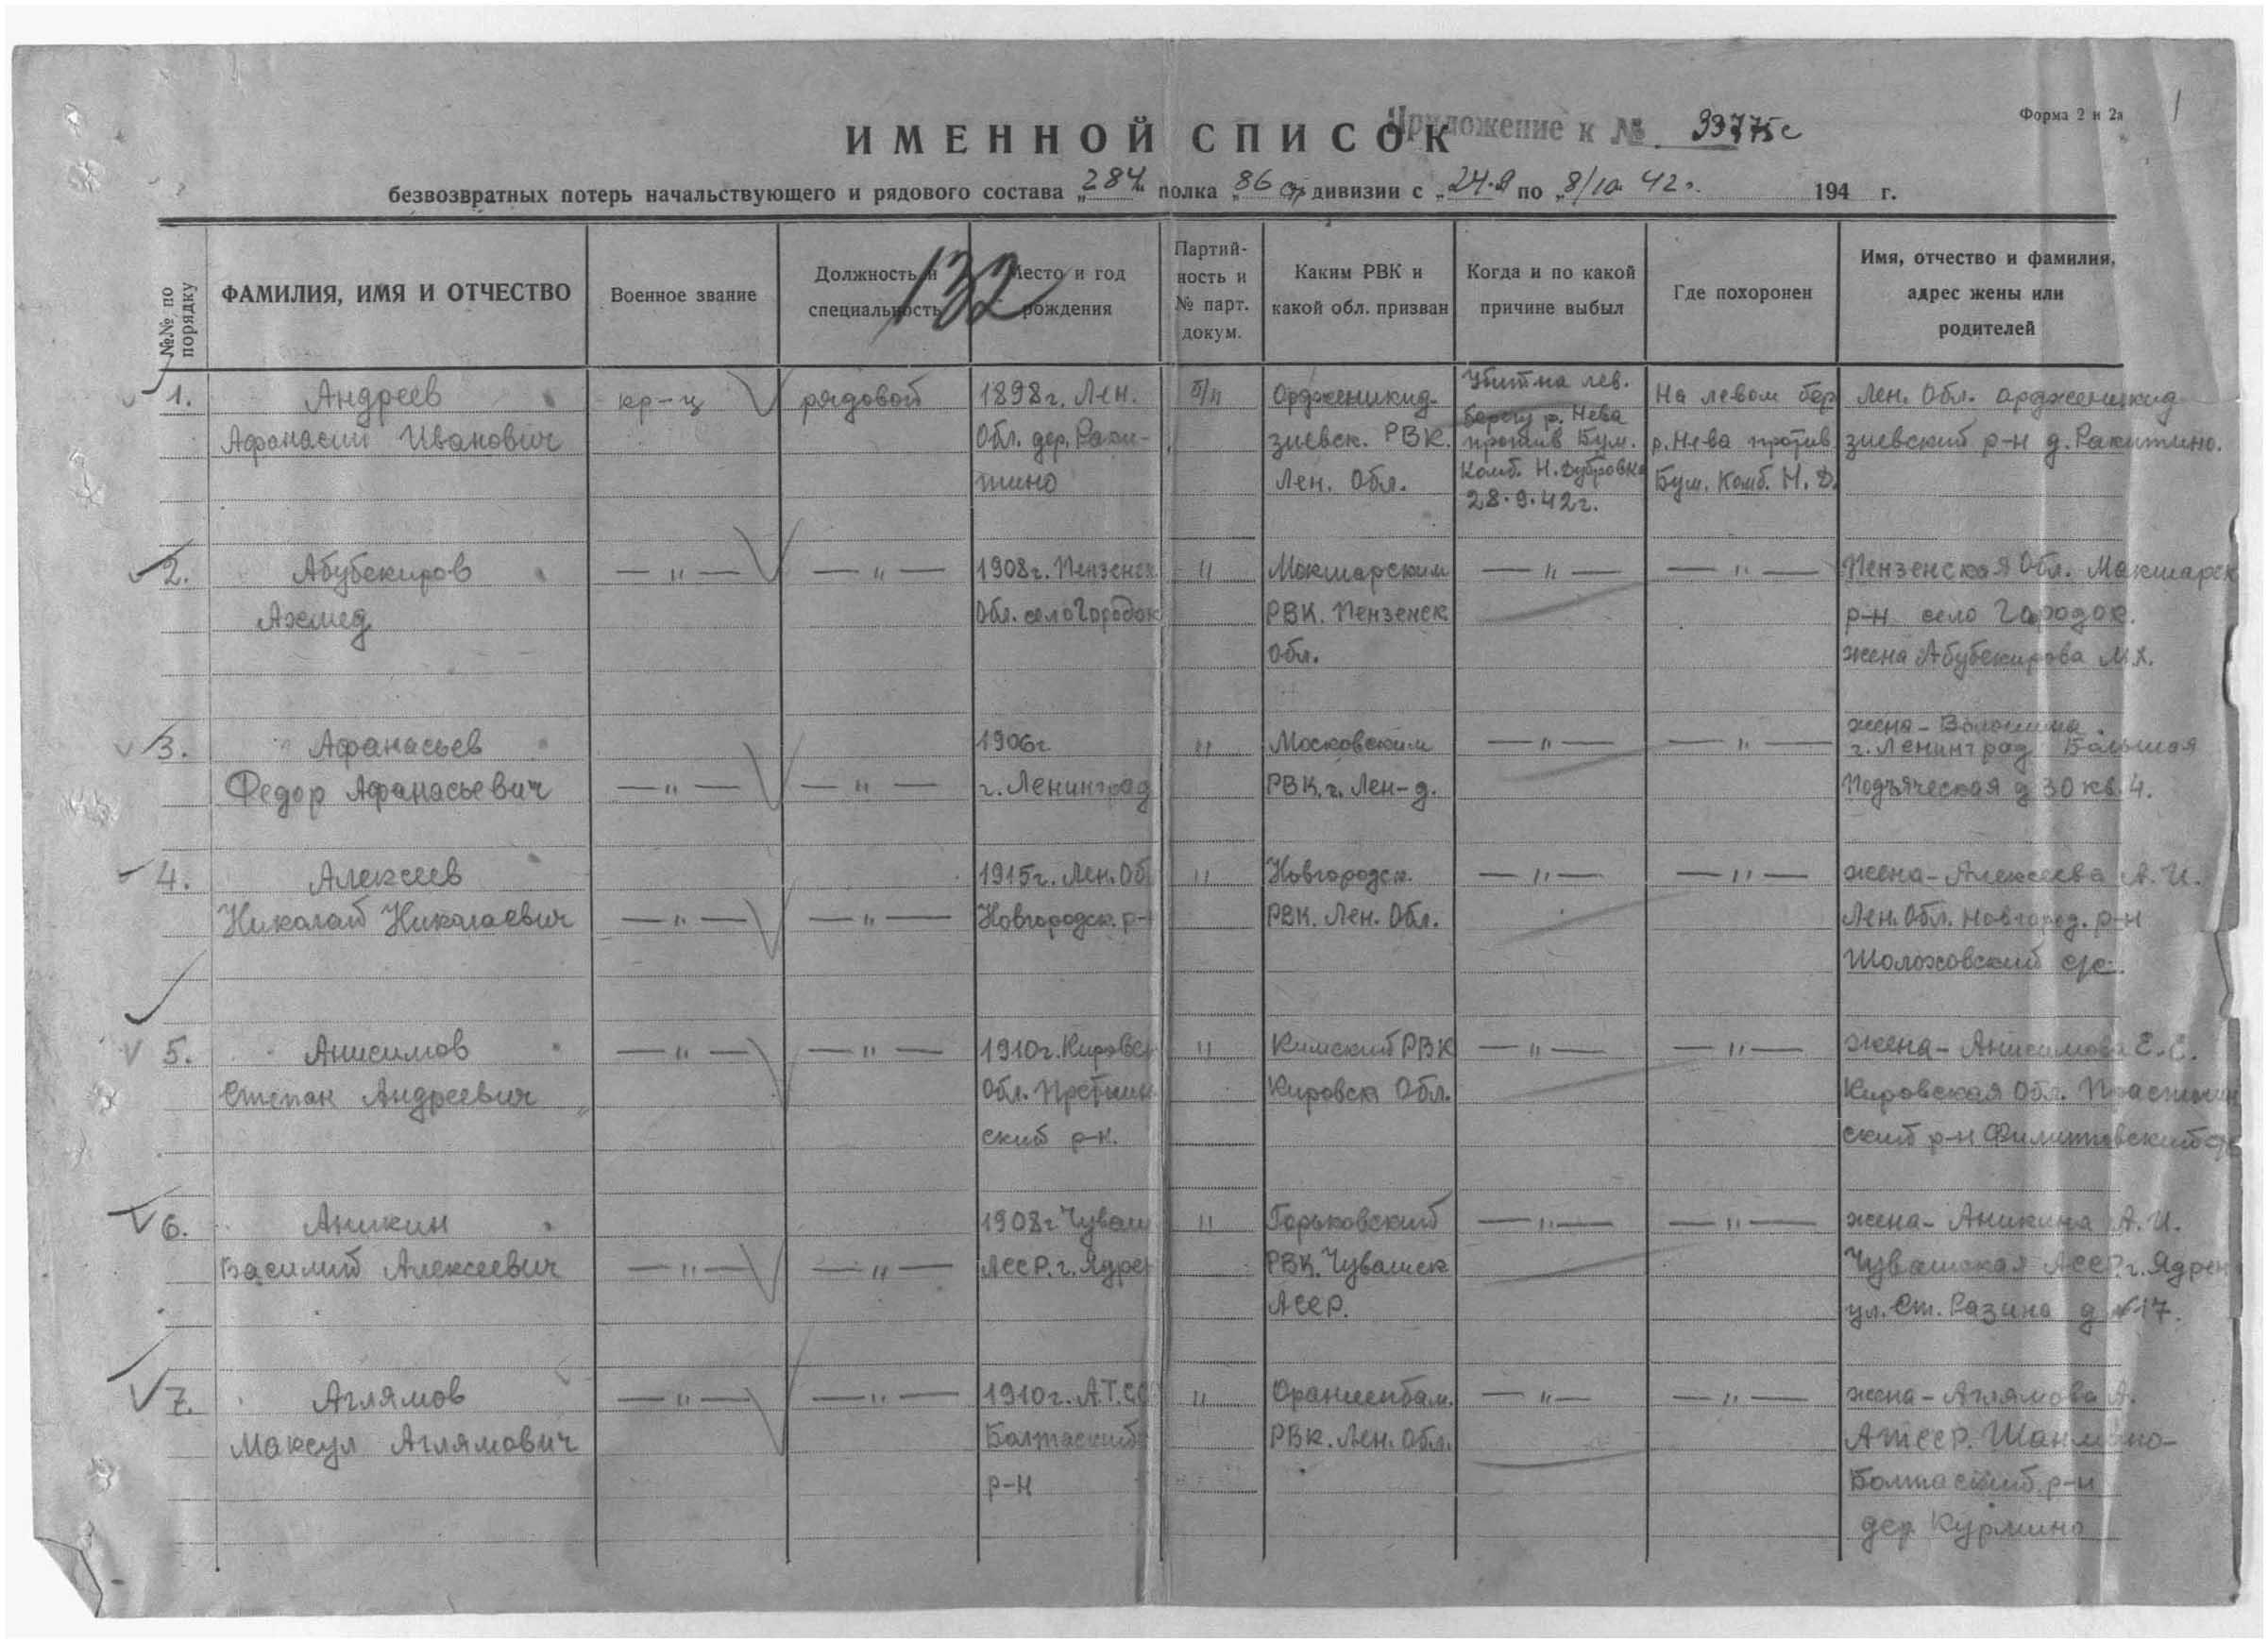 Форма 2 и 2а
1
ИМЕННОЙ СПИСОК
Приложение к № 39775с
безвозвратных потерь начальствующего и рядового состава „284 полка „86 сд дивизии с „24.9 по „8/10. 42г. 194 г.
132
№№ по порядку
ФАМИЛИЯ, ИМЯ И ОТЧЕСТВО
Военное звание
Должность и
специальность
Место и год
рождения
Партий-
ность и
№ парт.
докум.
Каким РВК и
какой обл. призван
Когда и по какой
причине выбыл
Где похоронен
Имя, отчество и фамилия,
адрес жены или
родителей
1.
Андреев
Афанасий Иванович
кр-ц
рядовой
1898г. Лен.
Обл. дер. Раки-
тино
Б/п
Ордженикид-
зиевск. РВК.
Лен. Обл.
Убит на лев.
берегу р. Нева
против Бум.
Комб. Н. Дубровка
28.9.42г.
На левом бер
р. Нева против
Бум. Комб. Н. Д.
Лен. Обл. Ордженикид-
зиевский р-н д. Ракитино.
2.
Абубекиров
Ахмед
— „ —
— „ —
1908г. Пензенск
Обл. село Городок
"
Мокшарским
РВК. Пензенск
Обл.
— „ —
— „ —
Пензенская Обл. Мокшарск
р-н село Городок.
жена Абубекирова М.Х.
3.
Афанасьев
Федор Афанасьевич
— „ —
— „ —
1906г
г. Ленинград
"
Московским
РВК. г. Лен-д.
— „ —
— „ —
жена - Волошина.
г. Ленинград Большая
Подъяческая д 30 кв. 4.
4.
Алексеев
Николай Николаевич
— „ —
— „ —
1915г. Лен. Об
Новгородск. р-н
"
Новгородск.
РВК. Лен. Обл.
— „ —
— „ —
жена - Алексеева А. И.
Лен. Обл. Новгород. р-н
Шолоховский с/с.
5.
Анисимов
Степан Андреевич
— „ —
— „ —
1910г. Кировск
Обл.
ский р-н.
"
Кимский РВК
Кировск Обл.
— „ —
— „ —
жена - Анисимова Е. С.
Кировская Обл.
ский р-н Филипповский с/с
6.
Аникин
Василий Алексеевич
— „ —
— „ —
1908г Чуваш
АССР. г. Ядрен
"
Горьковский
РВК. Чувашск
АССР.
— „ —
— „ —
жена - Аникина А. И.
Чувашская АССР. г. Ядрен
ул. Ст. Разина д №17.
7.
Аглямов
Максул Аглямович
— „ —
— „ —
1910г. А.Т.СС
Балтаский
р-н
"
Ораниенбам.
РВК. Лен. Обл.
— „ —
— „ —
жена - Аглямова А.
АТССР.
Балтаский р-н
дер Курмино